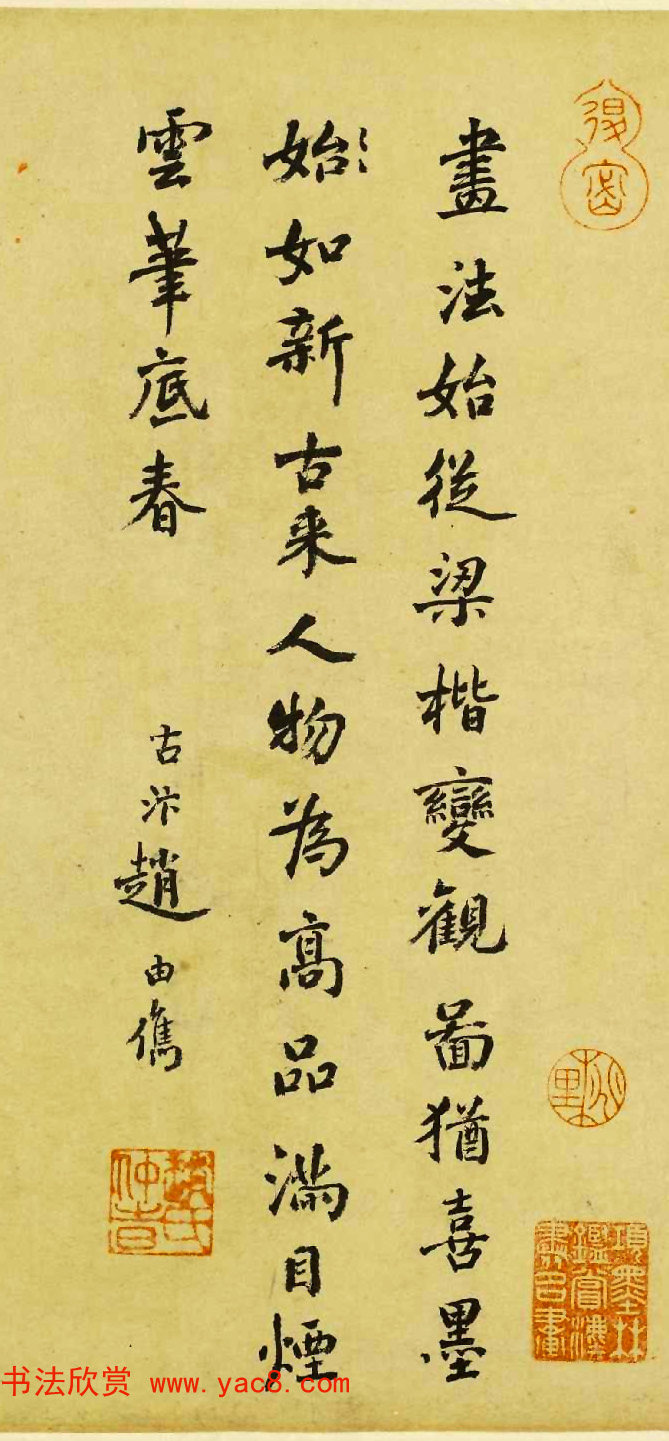 畫法始從梁楷變觀啚猶喜墨
始如新古来人物為高品滿目煙
雲筆底春
古汴趙由儁
項墨林
鑑賞灋
書名畫
书法欣赏 www.yac8.com